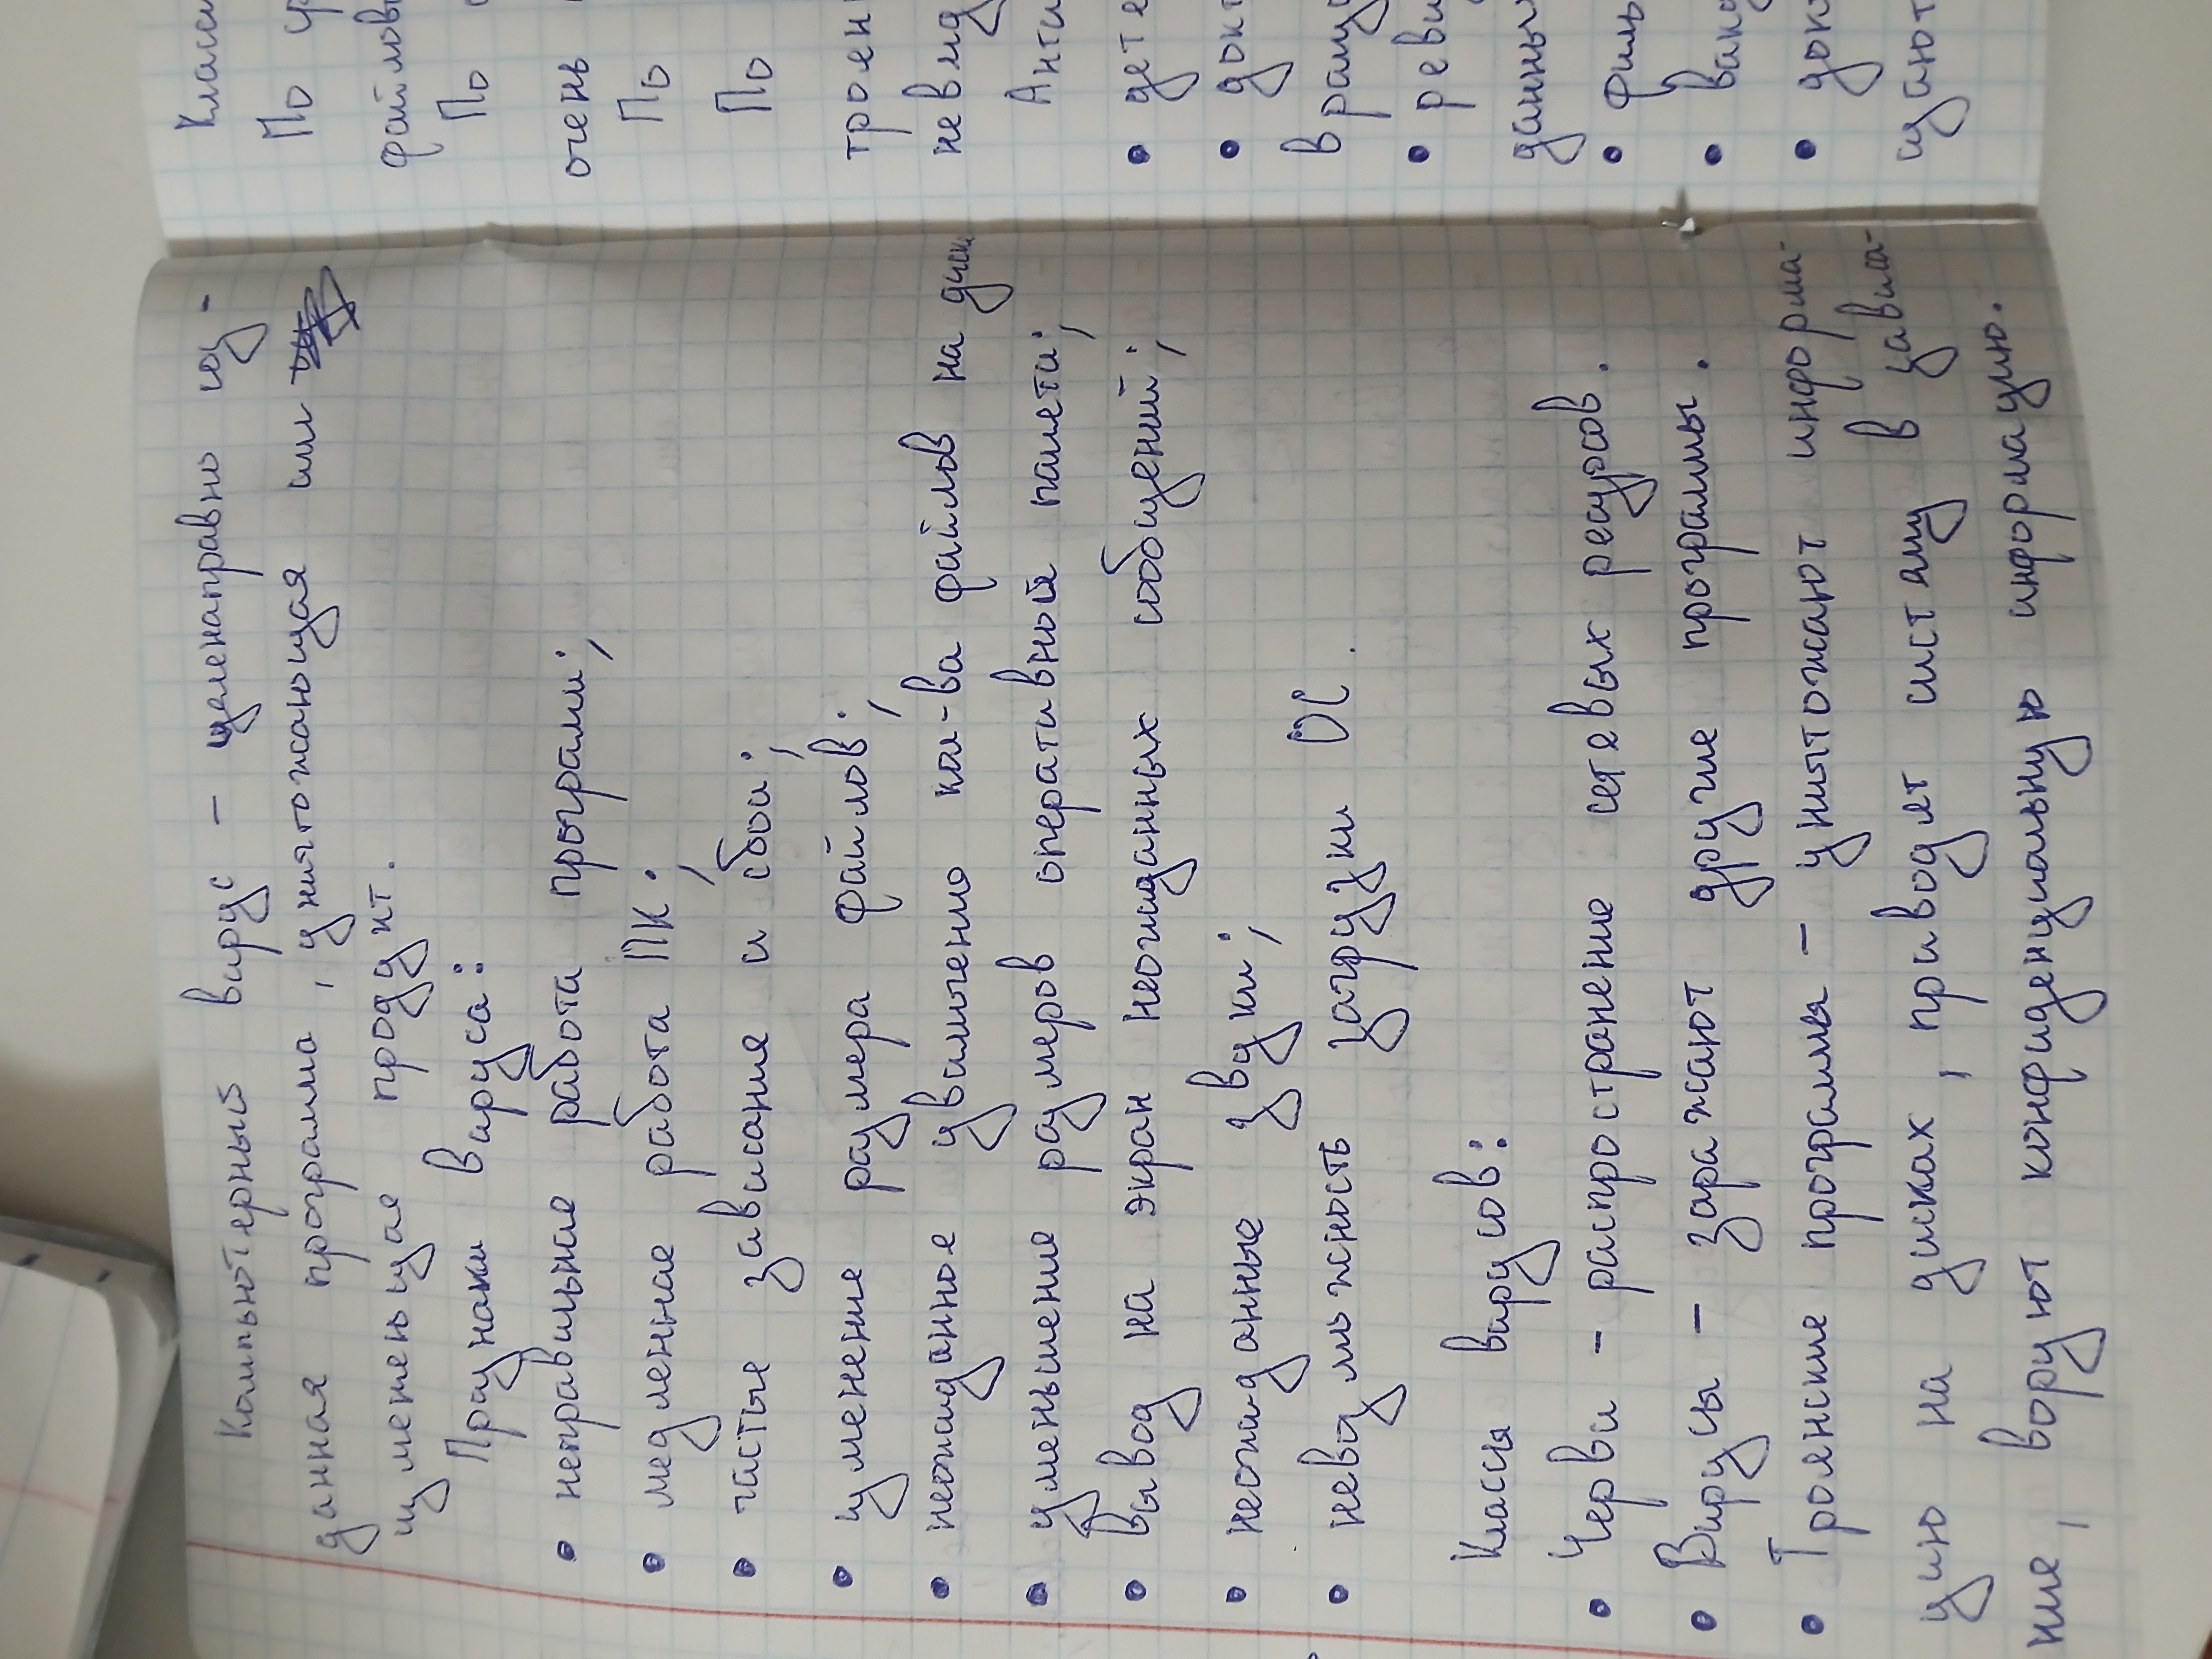 Компьютерный вирус – целенаправно соз-
данная программа, уничтожающая или
измененяцая продукт.
Признаки вируса:
• неправильние работа программ;
• медленное работа ПК;
• частые зависание и сбои;
• изменение размера файлов;
• неожиданное увеличение кол-ва файлов на диск
• уменьшение размеров оперативный памяти;
• Вывод на экран неожиданных сообщений;
• неожиданные звуки;
• невозможность загрузки ОС.
Классы вирусов:
• Черви – распростренение сетевых ресурсов.
• Вирусы – заражают другие программы.
• Троянские программы – уничтожают информа-
цию на дисках, приводят систему в зависа-
ние, воруют конфиденциальную информацию.
Класси
По
файлов
По
очень
По
По
троен
невид
Анти
• дете
• док
вращ
• реви
данны
• филь
• вакц
• док
щают